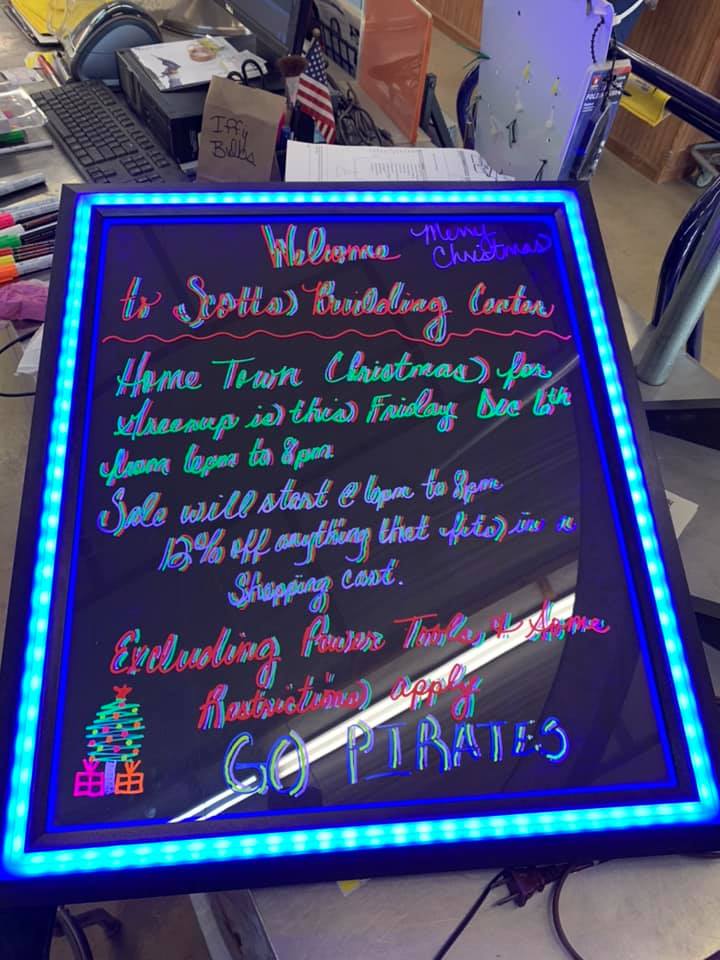 Iffy
Bulbs
Welcome
Merry
Christmas
to Scotts Building Center
Home Town Christmas for
Greenup is this Friday Dec 6th
from 6pm to 8pm
Sale will start @ 6pm to 8pm
12% off anything that fits in a
Shopping cart.
Excluding Power Tools, & Some
Restrictions apply
GO PIRATES